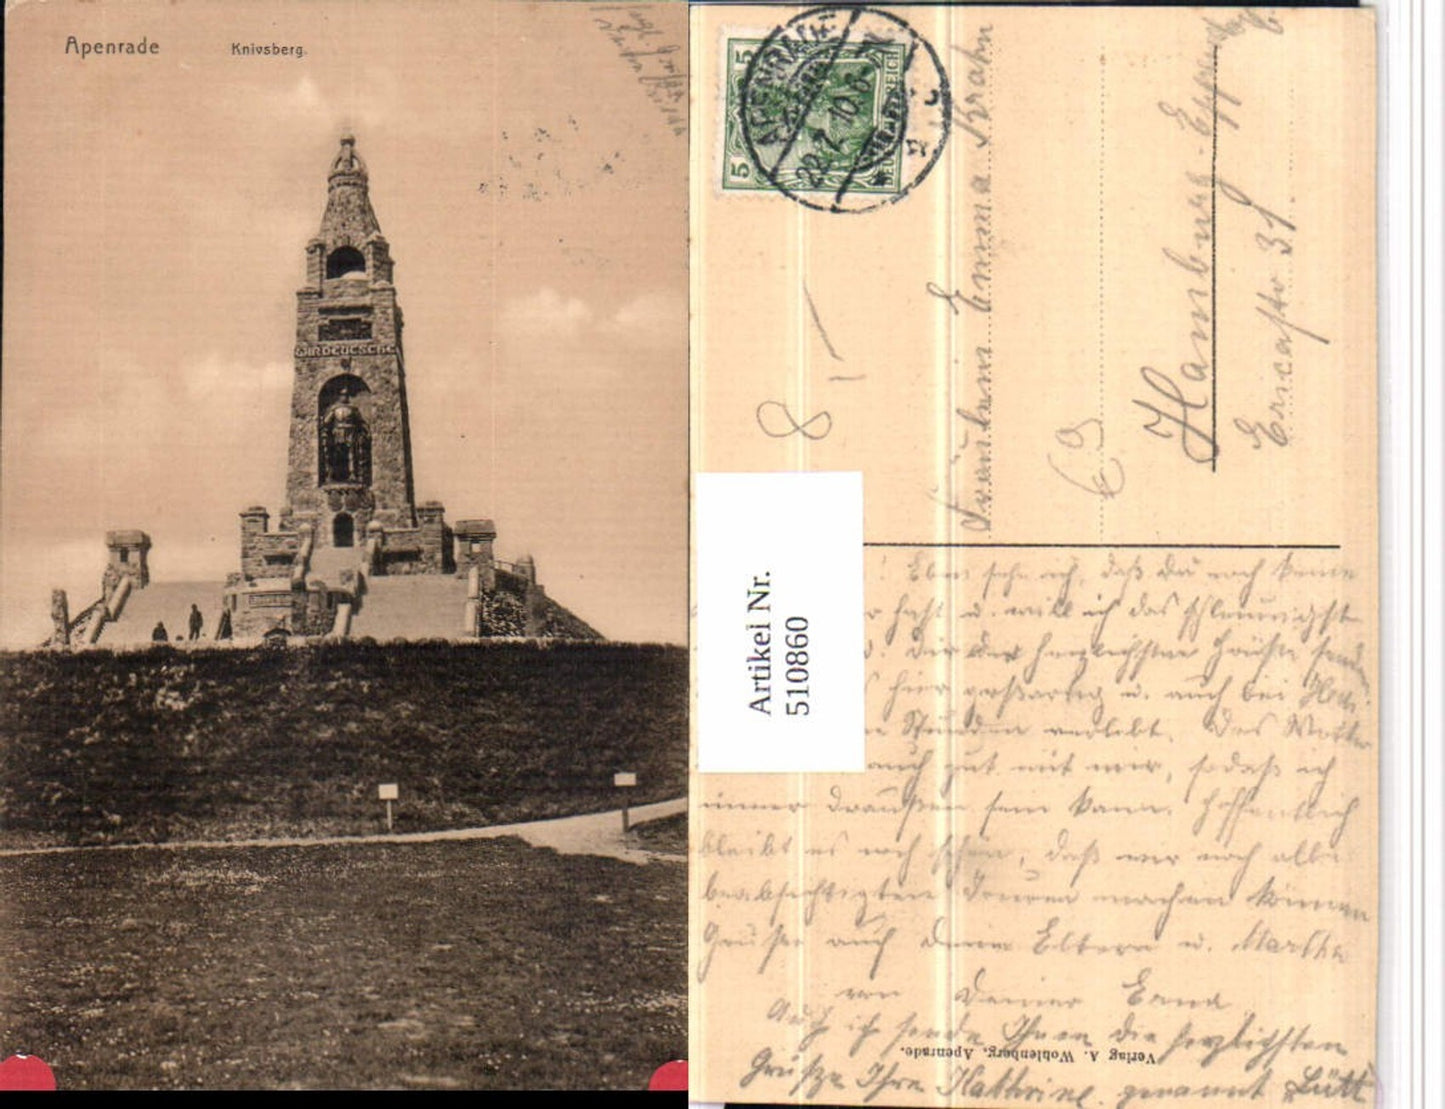 Apenrade Knivsberg.
WIR DEUTSCHE
5
5
APENRADE
10.6-7
DEUTSCHES REICH
Fräulein Emma Krahn
Hamburg-Eppend
Ericastr 31.
8
Artikel Nr.
510860
! Eben sehe ich, daß Du noch keine
hast u. will ich das schleunigst
Dir die herzlichsten Grüße send
hier großartig u. auch bei
Stunden verlebt. Das Wetter
auch gut mit mir, sodaß ich
immer draußen sein kann. Hoffentlich
bleibt es noch schön, daß wir noch alle
beabsichtigten Touren machen können
Grüße auch Deine Eltern u. Martha
von Deiner Erna
Auch ich sende Ihnen die herzlichsten
Grüße Ihre Kathrine genannt Lütt
Verlag A. Wohlenberg, Apenrade.